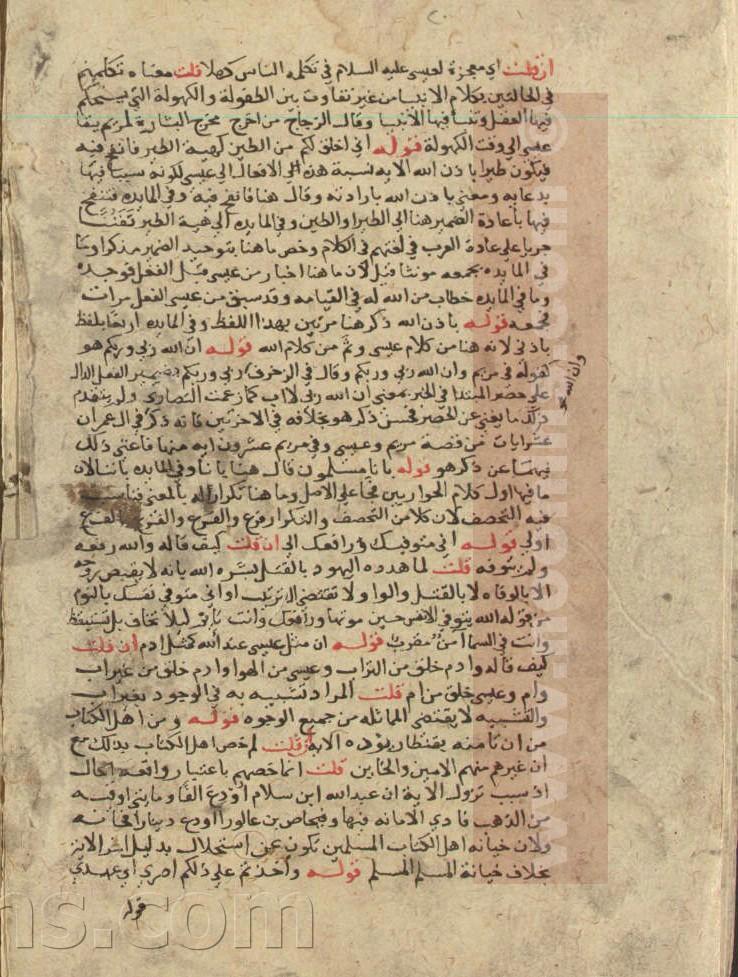 ان قلت اي معجزة لعيسى عليه السلام في تكلمه الناس كهلا قلت معناه تكلمهم
في الحالتين بكلام الانبيا من غير تفاوت بين الطفولة والكهولة التي يستحكم
فيها العقل وتنبأ فيها الانبيا وقال الزجاج من اخرج مخرج البشارة لمريم ببقا
عيسى الى وقت الكهولة قوله اني اخلق لكم من الطين كهية الطير فانفخ فيه
فيكون طيرا باذن الله الاية نسبة هذه الافعال الى عيسى لكونه سببا فيها
بدعايه ومعنى باذن الله بارادته وقال هنا فانفخ فيه وفي المايده فتنفخ
فيها باعادة الضمير هنا الى الطير او الطين وفي المايده الى هية الطير تفننا
جريا على عادة العرب في تفننهم في الكلام وخص ما هنا بتوحيد الضمير مذكرا وما
في المايده بجمعه مونثا قيل لان ما هنا اخبار من عيسى قبل الفعل فوحده
وما في المايده خطاب من الله له في القيامه وقد سبق من عيسى الفعل مرات
فجمعه قوله باذن الله ذكر هنا مرتين بهذا اللفظ وفي المايده اربعا بلفظ
باذني لانه هنا من كلام عيسى وثم من كلام الله قوله ان الله ربي وربكم هو
كقوله في مريم وان الله ربي وربكم وقال في الزخرف ربي وربكم بضمير الفعل الدال
على حصر المبتدا في الخبر بمعنى ان الله ربي لا اب كما زعمت النصارى ولم يتقدم
ذلك ما يغني عن الحصر فحسن ذكر هو بخلافه في الاخرتين فانه ذكر في ال عمران
عشر ايات من قصة مريم وعيسى وفي مريم عشرون اية منها فاغنى ذلك
فيهما عن ذكر هو قوله بانا مسلمون قال هنا بانا وفي المايده باننا لان
ما فيها اول كلام الحواريين فجا على الاصل وما هنا تكرار له بالمعنى فناسب
فيه التخفيف لان كلا من التخفيف والتكرار فرع والفرع والفرع بالفرع
اولى قوله اني متوفيك ورافعك الي ان قلت كيف قاله والله رفعه
ولم يتوفه قلت لما هدده اليهود بالقتل بشره الله بانه لا يقبض روحه
الا بالوفاه لا بالقتل والواو لا تقتضي الترتيب او اني متوفي نفسك بالنوم
من قوله الله يتوفى الانفس حين موتها ورافعك وانت نايم ليلا تخاف بل تستيقظ
وانت في السما امن مقرب قوله ان مثل عيسى عند الله كمثل ادم ان قلت
كيف قاله وادم خلق من التراب وعيسى من الهوا وادم خلق من غير اب
وام وعيسى خلق من ام قلت المراد تشبيه به في الوجود بغير اب
والتشبيه لا يقتضي المماثله من جميع الوجوه قوله ومن اهل الكتاب
من ان تامنه بقنطار يوده الاية ان قلت لم خص اهل الكتاب بذلك مع
ان غيرهم منهم الامين والخاين قلت انما خصهم باعتبار واقعة الحال
اذ سبب نزول الاية ان عبد الله ابن سلام اودع الفا ومايتي اوقيه
من الذهب فادي الامانه فيها وفنحاص بن عازورا اودع دينارا فخانه
ولان خيانه اهل الكتاب المسلمين تكون عن استحلال بدليل اخر الاية
بخلاف خيانة المسلم المسلم قوله واخذتم على ذلكم اصري اي عهدي
قوله
وان الله